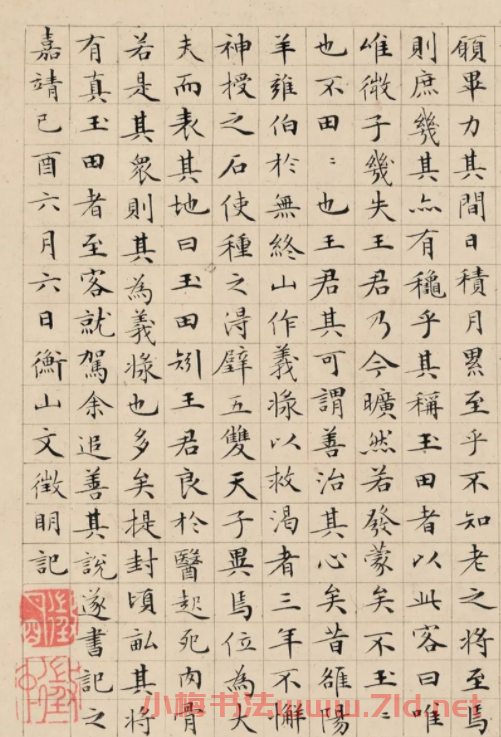 願畢力其間日積月累至乎不知老之將至焉
則庶幾其亦有穐乎其稱玉田者以此客曰唯
唯微子幾失王君乃今曠然若發蒙矣不玉〻
也不田〻也王君其可謂善治其心矣昔雒陽
羊雍伯於無終山作義漿以救渴者三年不懈
神授之石使種之得璧五雙天子異焉位為大
夫而表其地曰玉田矧王君良於醫起死肉骨
若是其眾則其為義漿也多矣提封頃畝其將
有真玉田者至客就駕余追善其說遂書記之
嘉靖己酉六月六日衡山文徵明記
小梅书法www.7ld.net